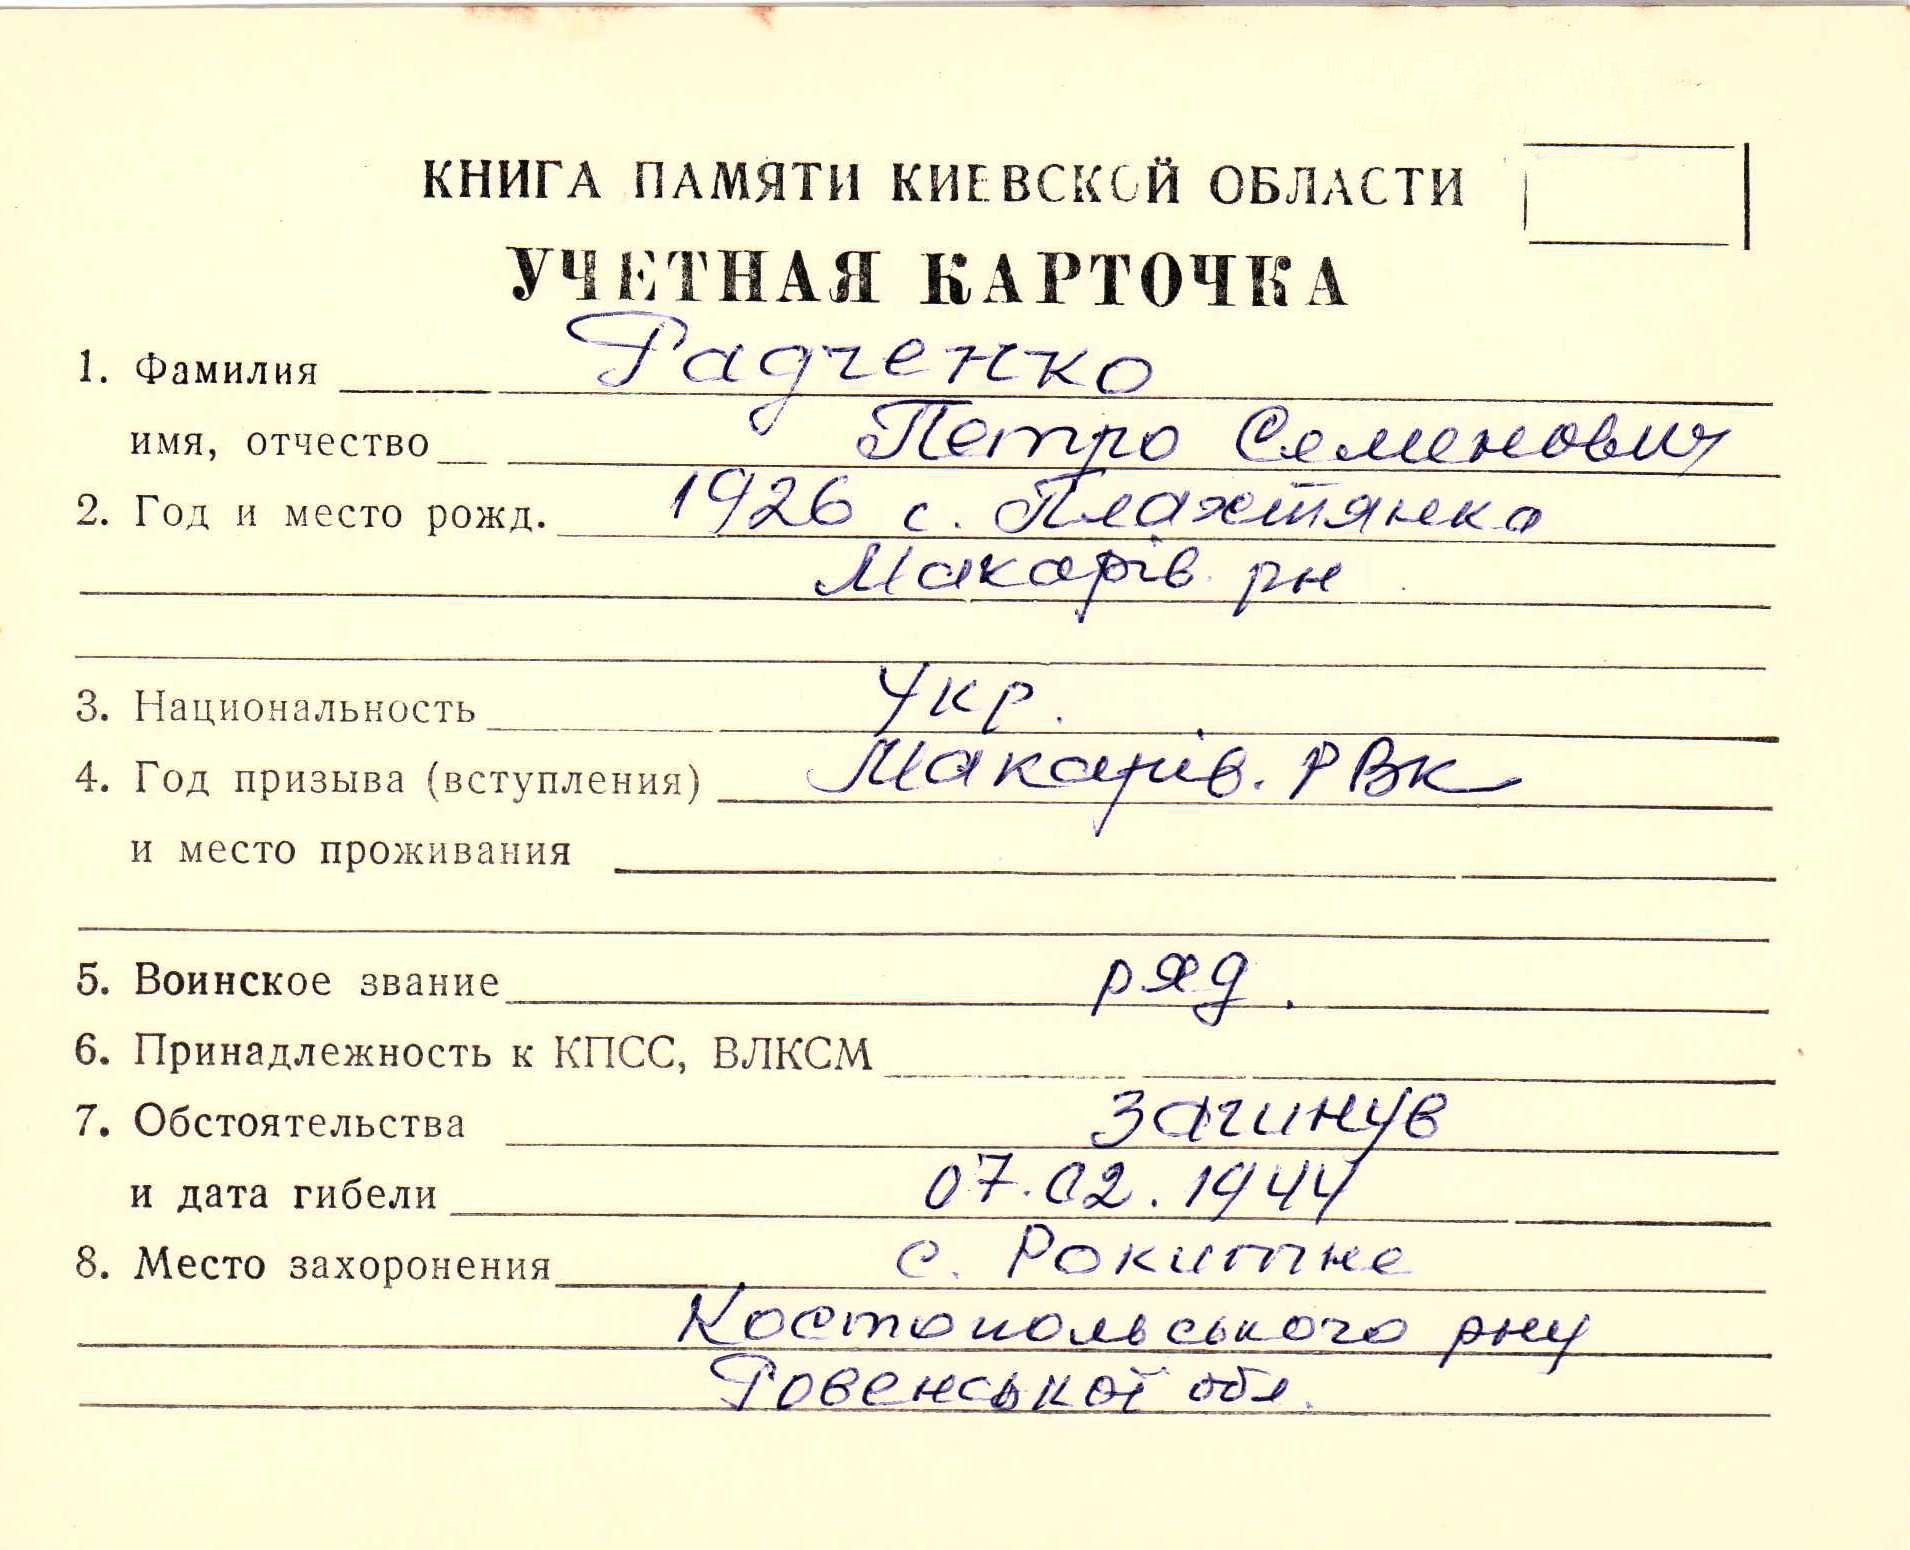 КНИГА ПАМЯТИ КИЕВСКОЙ ОБЛАСТИ
УЧЕТНАЯ КАРТОЧКА
1. Фамилия Радченко
имя, отчество Петро Семенович
2. Год и место рожд. 1926 с. Плахтянка
Макарів. рн
3. Национальность Укр.
4. Год призыва (вступления) Макарів. РВК
и место проживания
5. Воинское звание ряд.
6. Принадлежность к КПСС, ВЛКСМ
7. Обстоятельства загинув
и дата гибели 07.02.1944
8. Место захоронения с. Рокитне
Костопольського рну
Ровенської обл.